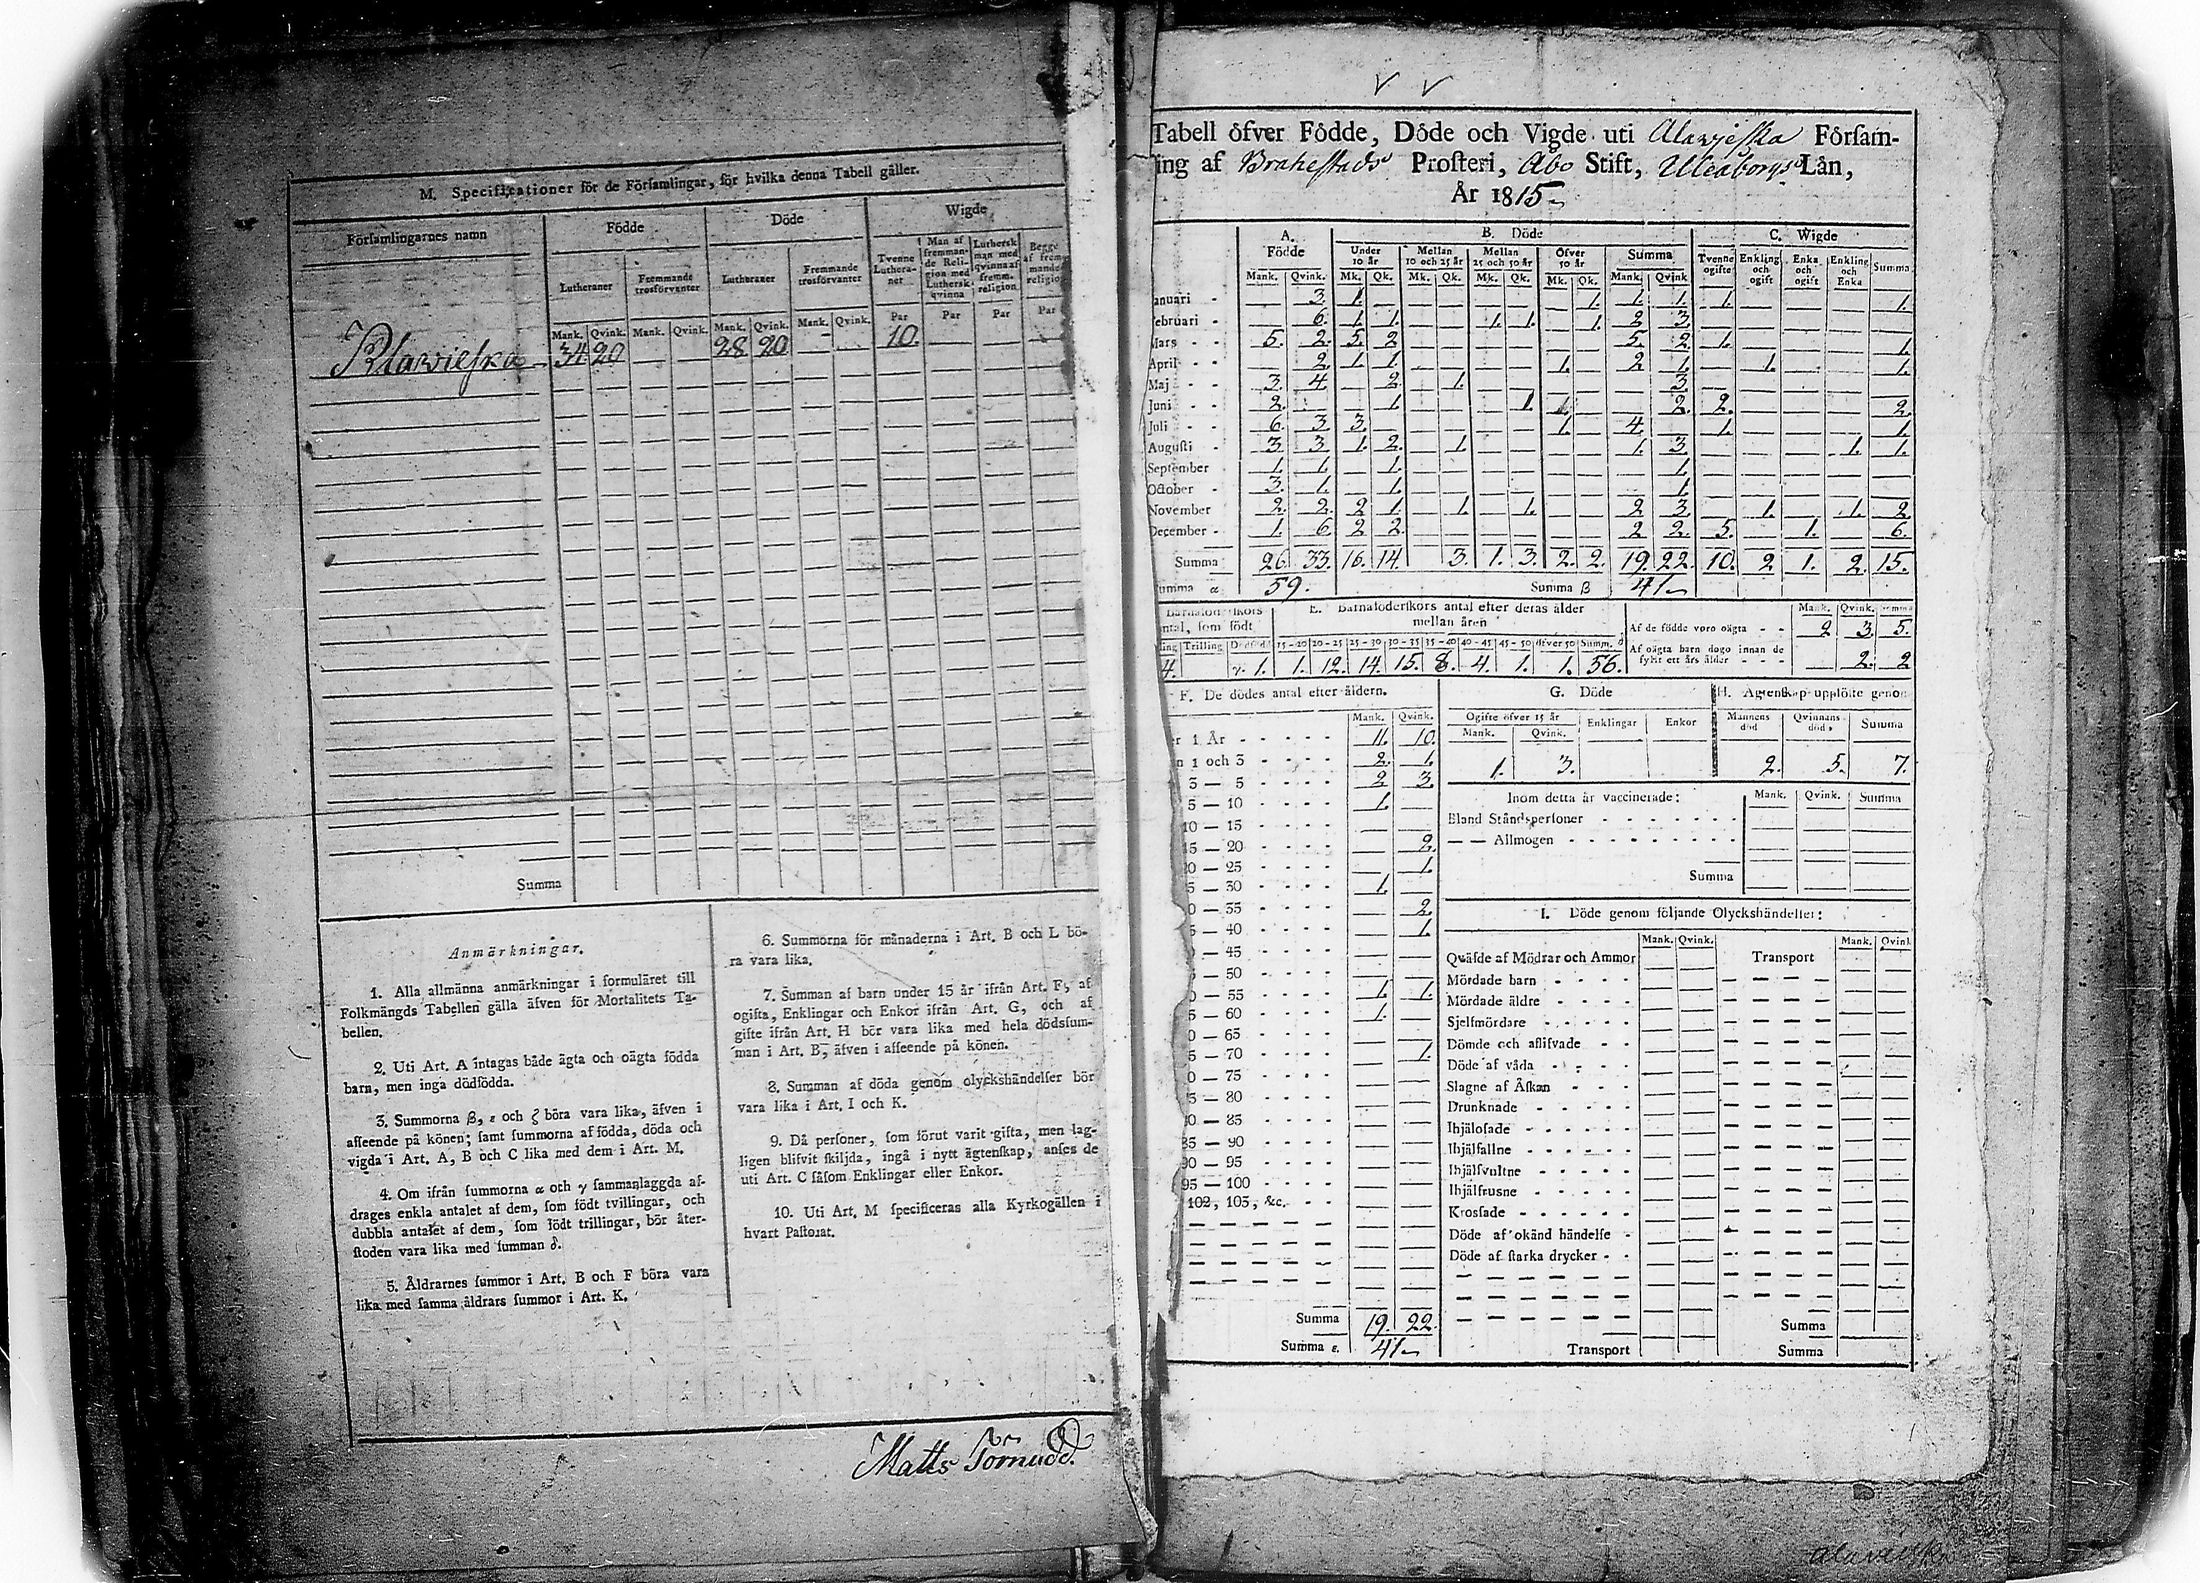 M. Specificationer för de Församlingar, för hvilka denna Tabell gäller.
Församlingarnes namn
Födde
Döde
Wigde
Lutheraner
Fremmande trosförvanter
Lutheraner
Fremmande trosförvanter
Tvenne Lutheraner
Man af fremmande Religion med Luthersk qvinna
Luthersk man med qvinna af fremm. religion
Begge af fremmande religion
Mank. Qvink. Mank. Qvink. Mank. Qvink. Mank. Qvink. Par Par Par Par
34 20 28 20 10.
Summa
Anmärkningar.
1. Alla allmänna anmärkningar i formuläret till
Folkmängds Tabellen gälla äfven för Mortalitets Ta-
bellen.
2. Uti Art. A intagas både ägta och oägta födda
barn, men inga dödfödda.
3. Summorna β, ε och ζ böra vara lika, äfven i
affeende på könen; famt fummorna af födda, döda och
vigda i Art. A, B och C lika med dem i Art. M.
4. Om ifrån fummorna α och γ fammanlaggda af-
drages enkla antalet af dem, fom födt tvillingar, och
dubbla antalet af dem, fom födt trillingar, bör åter-
ftoden vara lika med fumman δ.
5. Åldrarnes fummor i Art. B och F böra vara
lika med famma åldrars fummor i Art. K.
6. Summorna för månaderna i Art. B och L bö-
ra vara lika.
7. Summan af barn under 15 år ifrån Art. F, af
ogifta, Enklingar och Enkor ifrån Art. G, och af
gifte ifrån Art. H bör vara lika med hela dödsfum-
man i Art. B, äfven i affeende på könen.
8. Summan af döda genom olyckshändelfer bör
vara lika i Art. I och K.
9. Då perfoner, fom förut varit gifta, men lag-
ligen blifvit fkiljda, ingå i nytt ägtenfkap, anfes de
uti Art. C fåfom Enklingar eller Enkor.
10. Uti Art. M fpecificeras alla Kyrkogällen i
hvart Paftorat.
Matts Törnudd.
Tabell öfver Födde, Döde och Vigde uti Alawjeska Förfam-
ling af Brahestads Profteri, Åbo Stift, Uleåborgs Län,
År 1815
A. Födde
B. Döde
C. Wigde
Under 10 år
Mellan 10 och 25 år
Mellan 25 och 50 år
Öfver 50 år
Summa
Tvenne ogifte
Enkling och ogift
Enka och ogift
Enkling och Enka
Summa
Mank. Qvink. Mk. Qk. Mk. Qk. Mk. Qk. Mk. Qk. Mank. Qvink
anuari - 3 1. 1. 1. 1. 1. 1.
februari - 6. 1. 1. 1. 1. 1. 2 3.
Mars - - 5. 2. 5. 2 5. 2. 1. 1.
April - - 2. 1. 1. 1. 2 1. 1. 1.
Maj - - 3. 4. 2. 1. 3.
Juni - - 2. 1. 1. 2. 2. 2.
Juli - - 6. 3 3. 1. 4. 1. 1.
Augufti - 3. 3. 1. 2. 1. 1. 3. 1. 1.
September - 1. 1. 1. 1.
October - 3. 1. 1. 1.
November 2. 2. 2 1. 1. 1. 2 3. 1. 1. 2.
December - 1. 6 2 2. 2 2. 5. 1. 6.
Summa 26. 33. 16. 14. 3. 1. 3. 2. 2. 19. 22. 10. 2 1. 2. 15.
umma α 59. Summa β 41
E. Barnaföderfkors antal efter deras ålder
mellan åren
ntal, fom födt
Trilling
15-20 20-25 25-30 30-35 35-40 40-45 45-50 öfver 50 Summ. δ
4. 1. 1. 12. 14. 15. 8. 4. 1. 1. 56.
Mank. Qvink.
Af de födde voro oägta - - 2 3. 5.
Af oägta barn dogo innan de
fyllt ett års ålder - - - 2. 2
F. De dödes antal efter åldern.
Mank. Qvink.
r 1 År - - - - - 11. 10.
n 1 och 3 - - - - 2. 1.
3 — 5 - - - - 2 3.
5 — 10 - - - - 1.
10 — 15 - - - -
15 — 20 - - - - 2.
20 — 25 - - - - 1.
5 — 30 - - - - 1.
0 — 35 - - - - 2.
5 — 40 - - - - 1.
— 45 - - - -
— 50 - - - -
0 — 55 - - - - 1. 1.
— 60 - - - - 1.
0 — 65 - - - -
5 — 70 - - - - 1.
0 — 75 - - - -
5 — 80 - - - -
80 — 85 - - - -
85 — 90 - - - -
90 — 95 - - - -
95 — 100 - - - -
102, 103, &c. - - -
Summa 19. 22.
Summa ε. 41
G. Döde
Ogifte öfver 15 år
Enklingar
Enkor
Mank. Qvink.
1. 3.
H. Ägtenfkap upplöfte genom
Mannens död
Qvinnans död
Summa
2. 5. 7.
Inom detta år vaccinerade: Mank. Qvink. Summa
Bland Ståndsperfoner - - - - - - -
— — Allmogen - - - - - - - -
Summa
I. Döde genom följande Olyckshändelfer:
Mank. Qvink. Mank. Qvink
Qväfde af Mödrar och Ammor Transport
Mördade barn - - - -
Mördade äldre - - - -
Sjelfmördare - - - - -
Dömde och aflifvade - -
Döde af våda - - - -
Slagne af Åfkan - - - -
Drunknade - - - - -
Ihjälofade - - - - -
Ihjälfallne - - - - -
Ihjälfvultne - - - - -
Ihjälfrusne - - - - -
Krosfade - - - - - -
Döde af okänd händelfe -
Döde af ftarka drycker - -
Summa
Transport Summa